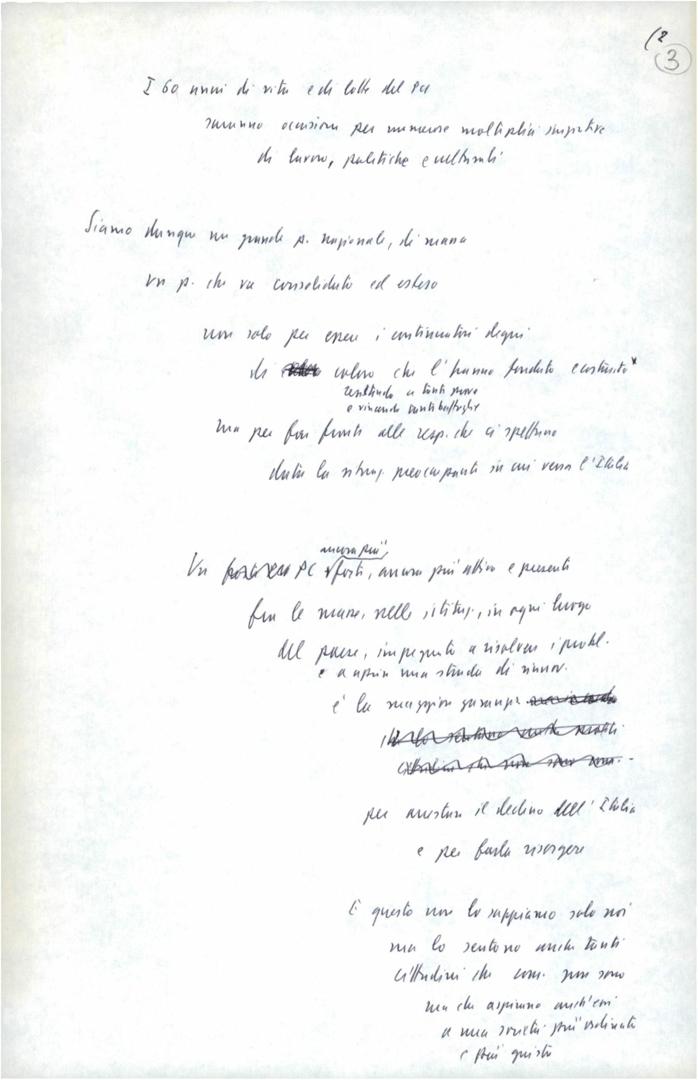 (2
3
I 60 anni di vita e di lotte del PCI
saranno occasione per numerose molteplici iniziative
di lavoro, politiche e culturali
Siamo dunque un grande p. nazionale, di massa
un p. che va consolidato ed esteso
non solo per essere i continuatori degni
di coloro che l'hanno fondato e costruito x
resistendo a tante prove
e vincendo tante battaglie
ma per far fronte alle resp. che ci spettano
data la situaz. preoccupante in cui versa l'Italia
ancora più,
Un PC forte, ancora più attivo e presente
fra le masse, nelle istituz., in ogni luogo
del paese, impegnato a risolvere i probl.
e a aprire una strada di rinnov.
è la maggior garanzia
per arrestare il declino dell'Italia
e per farla risorgere
E questo non lo sappiamo solo noi
ma lo sentono anche tanti
cittadini che com. non sono
ma che aspirano anch'essi
a una società più ordinata
e più giusta